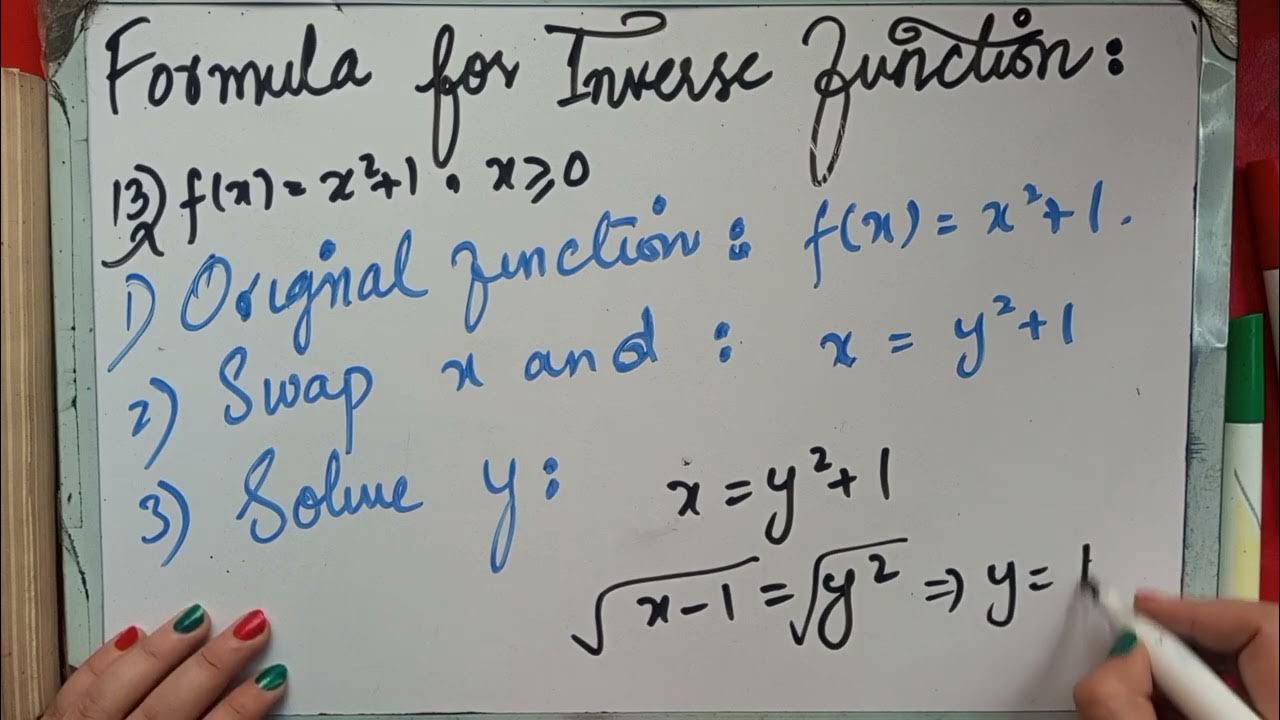 Formula for Inverse function:
13) f(x) = x²+1 . x ≥ 0
1) Original function : f(x) = x²+1.
2) Swap x and : x = y²+1
3) Solve y: x = y²+1
√x-1 = √y² ⇒ y =